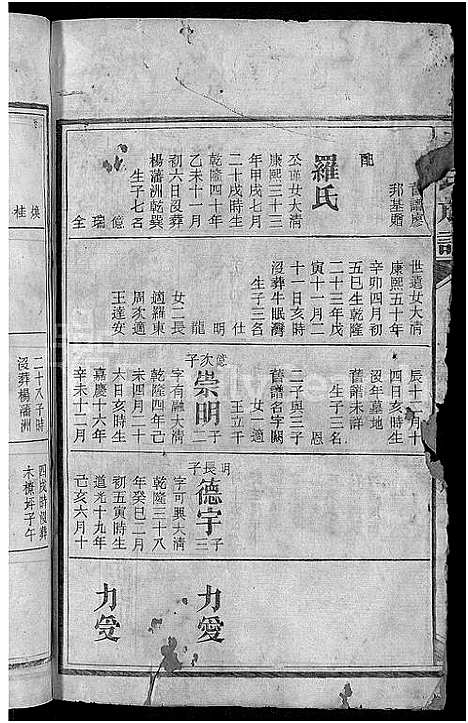 舊譜廖
邦基贈
配
羅氏
丕瑾女大清
康熙三十三
年甲戌七月
二十戌時生
乾隆四十年
乙未十一月
初六日沒葬
楊藩洲乾巽
生子七名
億
瑞
全
世選女大清
康熙五十年
辛卯四月初
五巳生乾隆
二十三年戊
寅十一月二
十一日亥時
沒葬牛眠灣
生子三名
仕
明
龍
女二長
適羅東
周次適
王達安
辰十二月十
四日亥時生
沒年墓地
舊譜未詳
生子三名
恩
二子與三子
舊譜名字闕
女一適
王立千
億次子
崇明
二子
字有融大清
乾隆四年己
未四月二十
六日亥時生
嘉慶十六年
辛未十二月
明長子
德宇
三子
字可興大清
乾隆三十八
年癸巳二月
初五寅時生
道光十九年
己亥六月十
力愛
力受
煥
桂
二十八子時
沒葬楊藩洲
四戌時歿葬
木橑坪子午